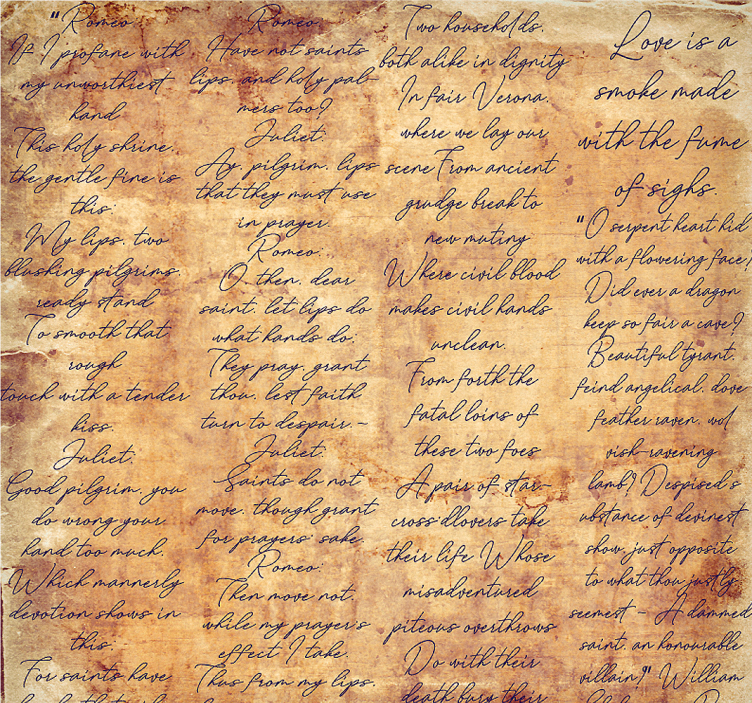 "Romeo
If I profane with
my unworthiest
hand
This holy shrine,
the gentle fine is
this:
My lips, two
blushing pilgrims,
ready stand
To smooth that
rough
touch with a tender
kiss.
Juliet.
Good pilgrim, you
do wrong your
hand too much,
Which mannerly
devotion shows in
this;
For saints have
Romeo.
Have not saints
lips, and holy pal-
mers too?
Juliet.
Ay, pilgrim, lips
that they must use
in prayer.
Romeo:
O then, dear
saint, let lips do
what hands do;
They pray, grant
thou, lest faith
turn to despair.-
Juliet.
Saints do not
move, though grant
for prayers' sake.
Romeo:
Then move not,
while my prayer's
effect I take.
Thus from my lips,
Two households,
both alike in dignity
In fair Verona,
where we lay our
scene From ancient
grudge break to
new mutiny
Where civil blood
makes civil hands
unclean.
From forth the
fatal loins of
these two foes
A pair of star-
cross'dlovers take
their life Whose
misadventured
piteous overthrows
Do with their
death bury their
Love is a
smoke made
with the fume
of sighs.
"O serpent heart hid
with a flowering face!
Did ever a dragon
keep so fair a cave?
Beautiful tyrant,
feind angelical, dove
feather raven, wol
vish-ravening
lamb! Despised s
ubstance of devinest
show, just opposite
to what thou justly
seemest - A damned
saint, an honourable
villain!" William